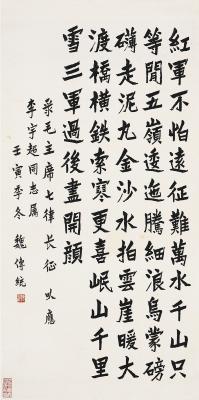 紅軍不怕遠征難萬水千山只
等閒五嶺逶迤騰細浪烏蒙磅
礴走泥丸金沙水拍雲崖暖大
渡橋橫鐵索寒更喜岷山千里
雪三軍過後盡開顏
彔毛主席七律長征以應
李宇超同志属
壬寅季冬 魏傳統